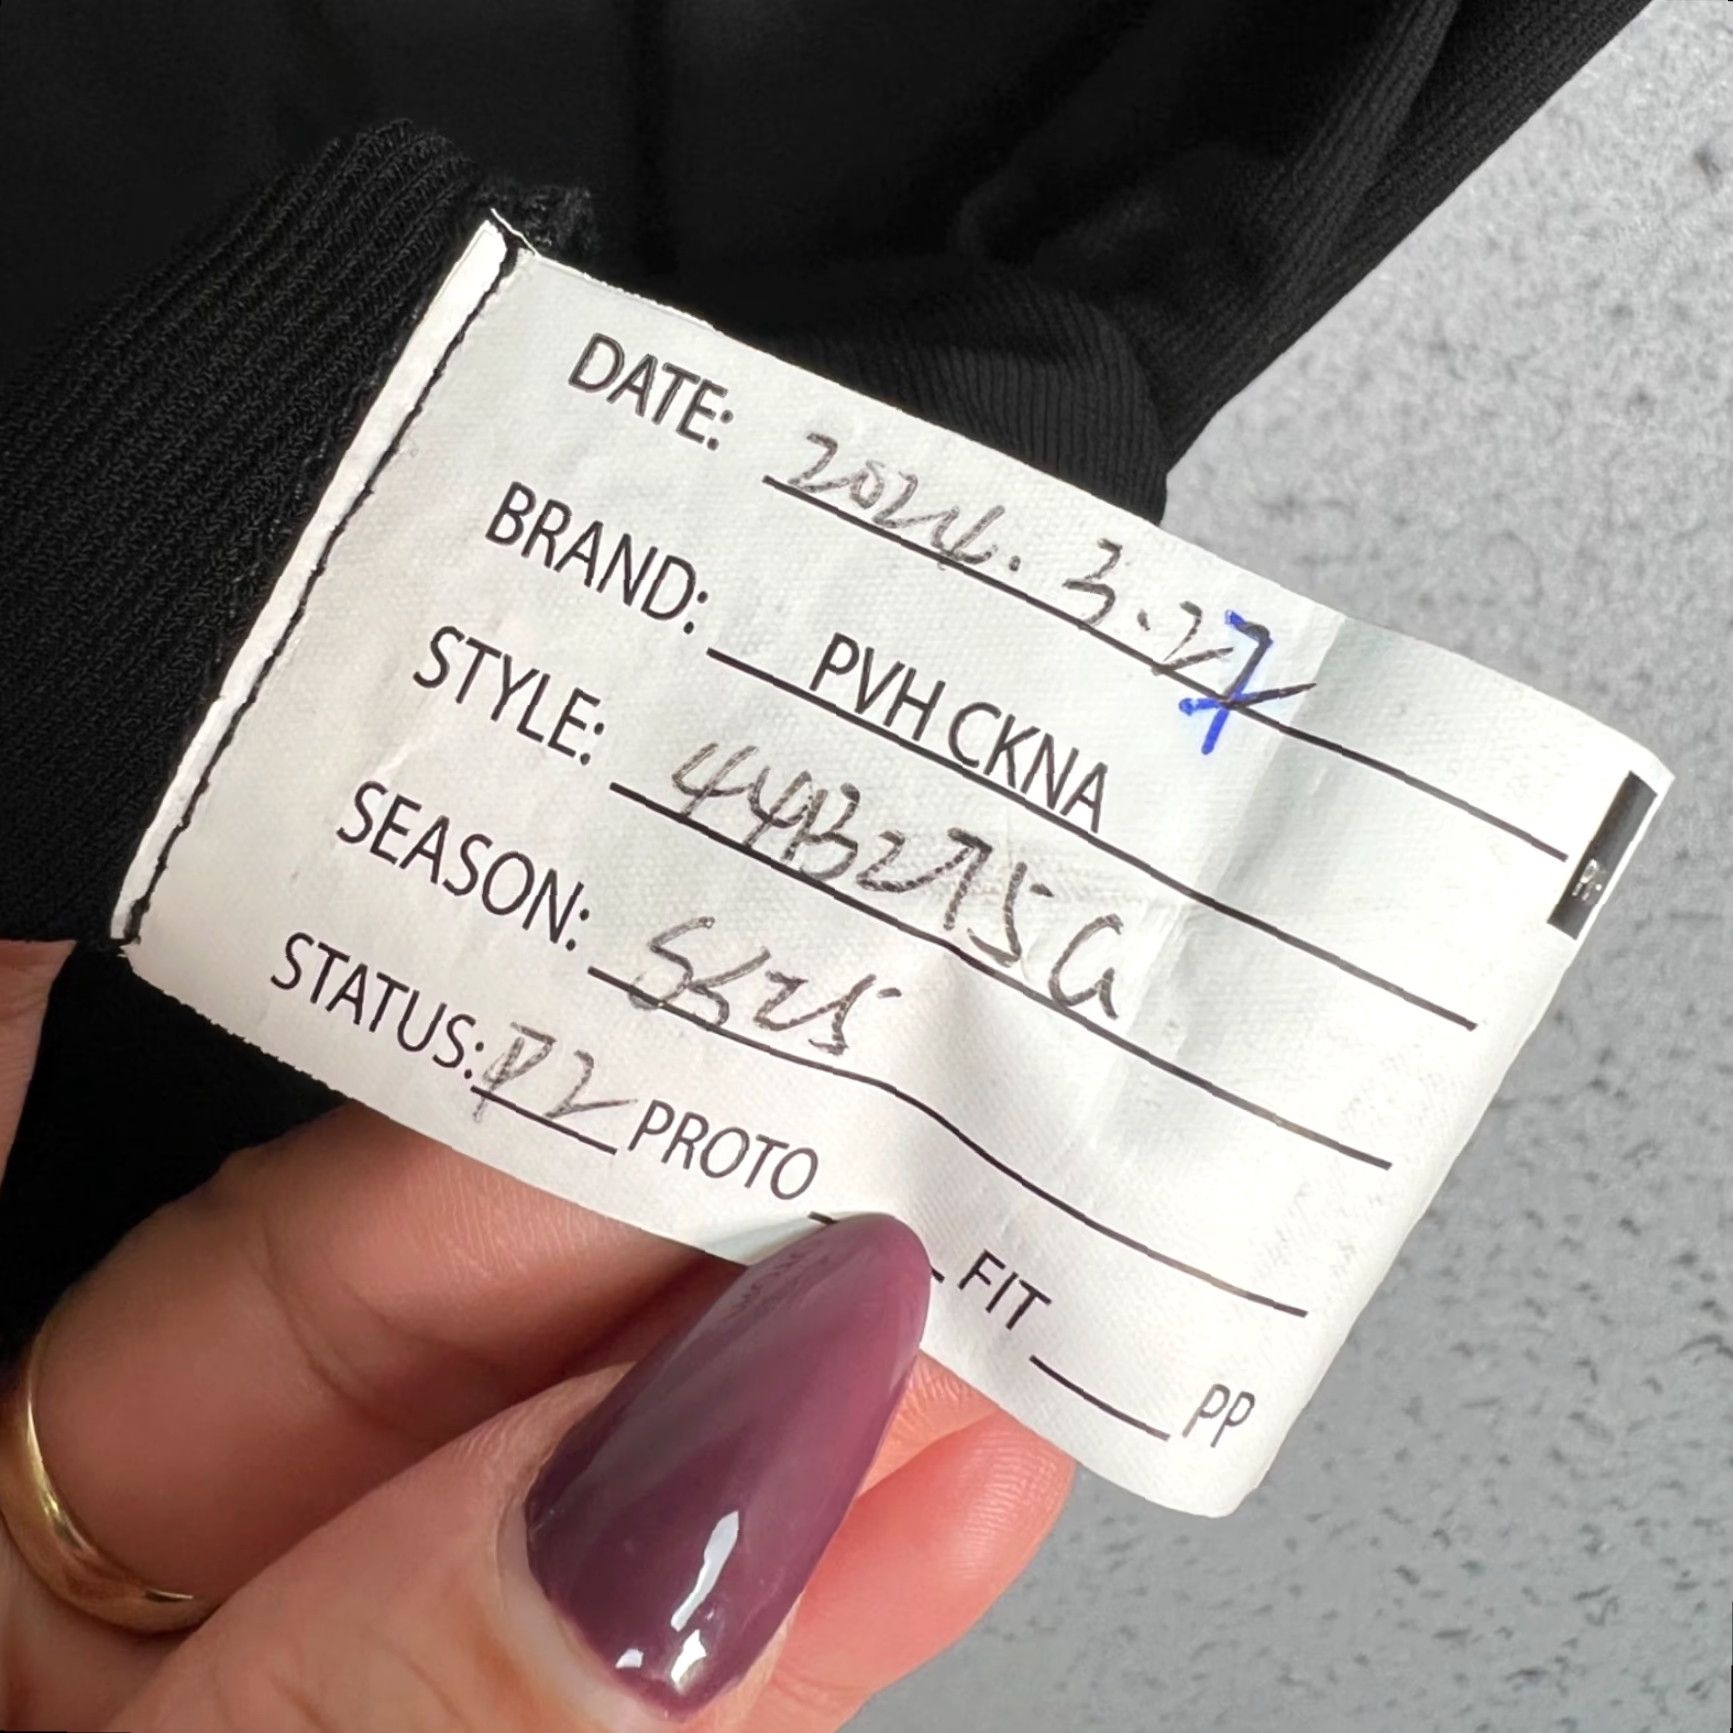 DATE: 2024.3.27
BRAND: PVH CKNA
STYLE: 44B275G
SEASON: SS25
STATUS: P2 PROTO FIT PP